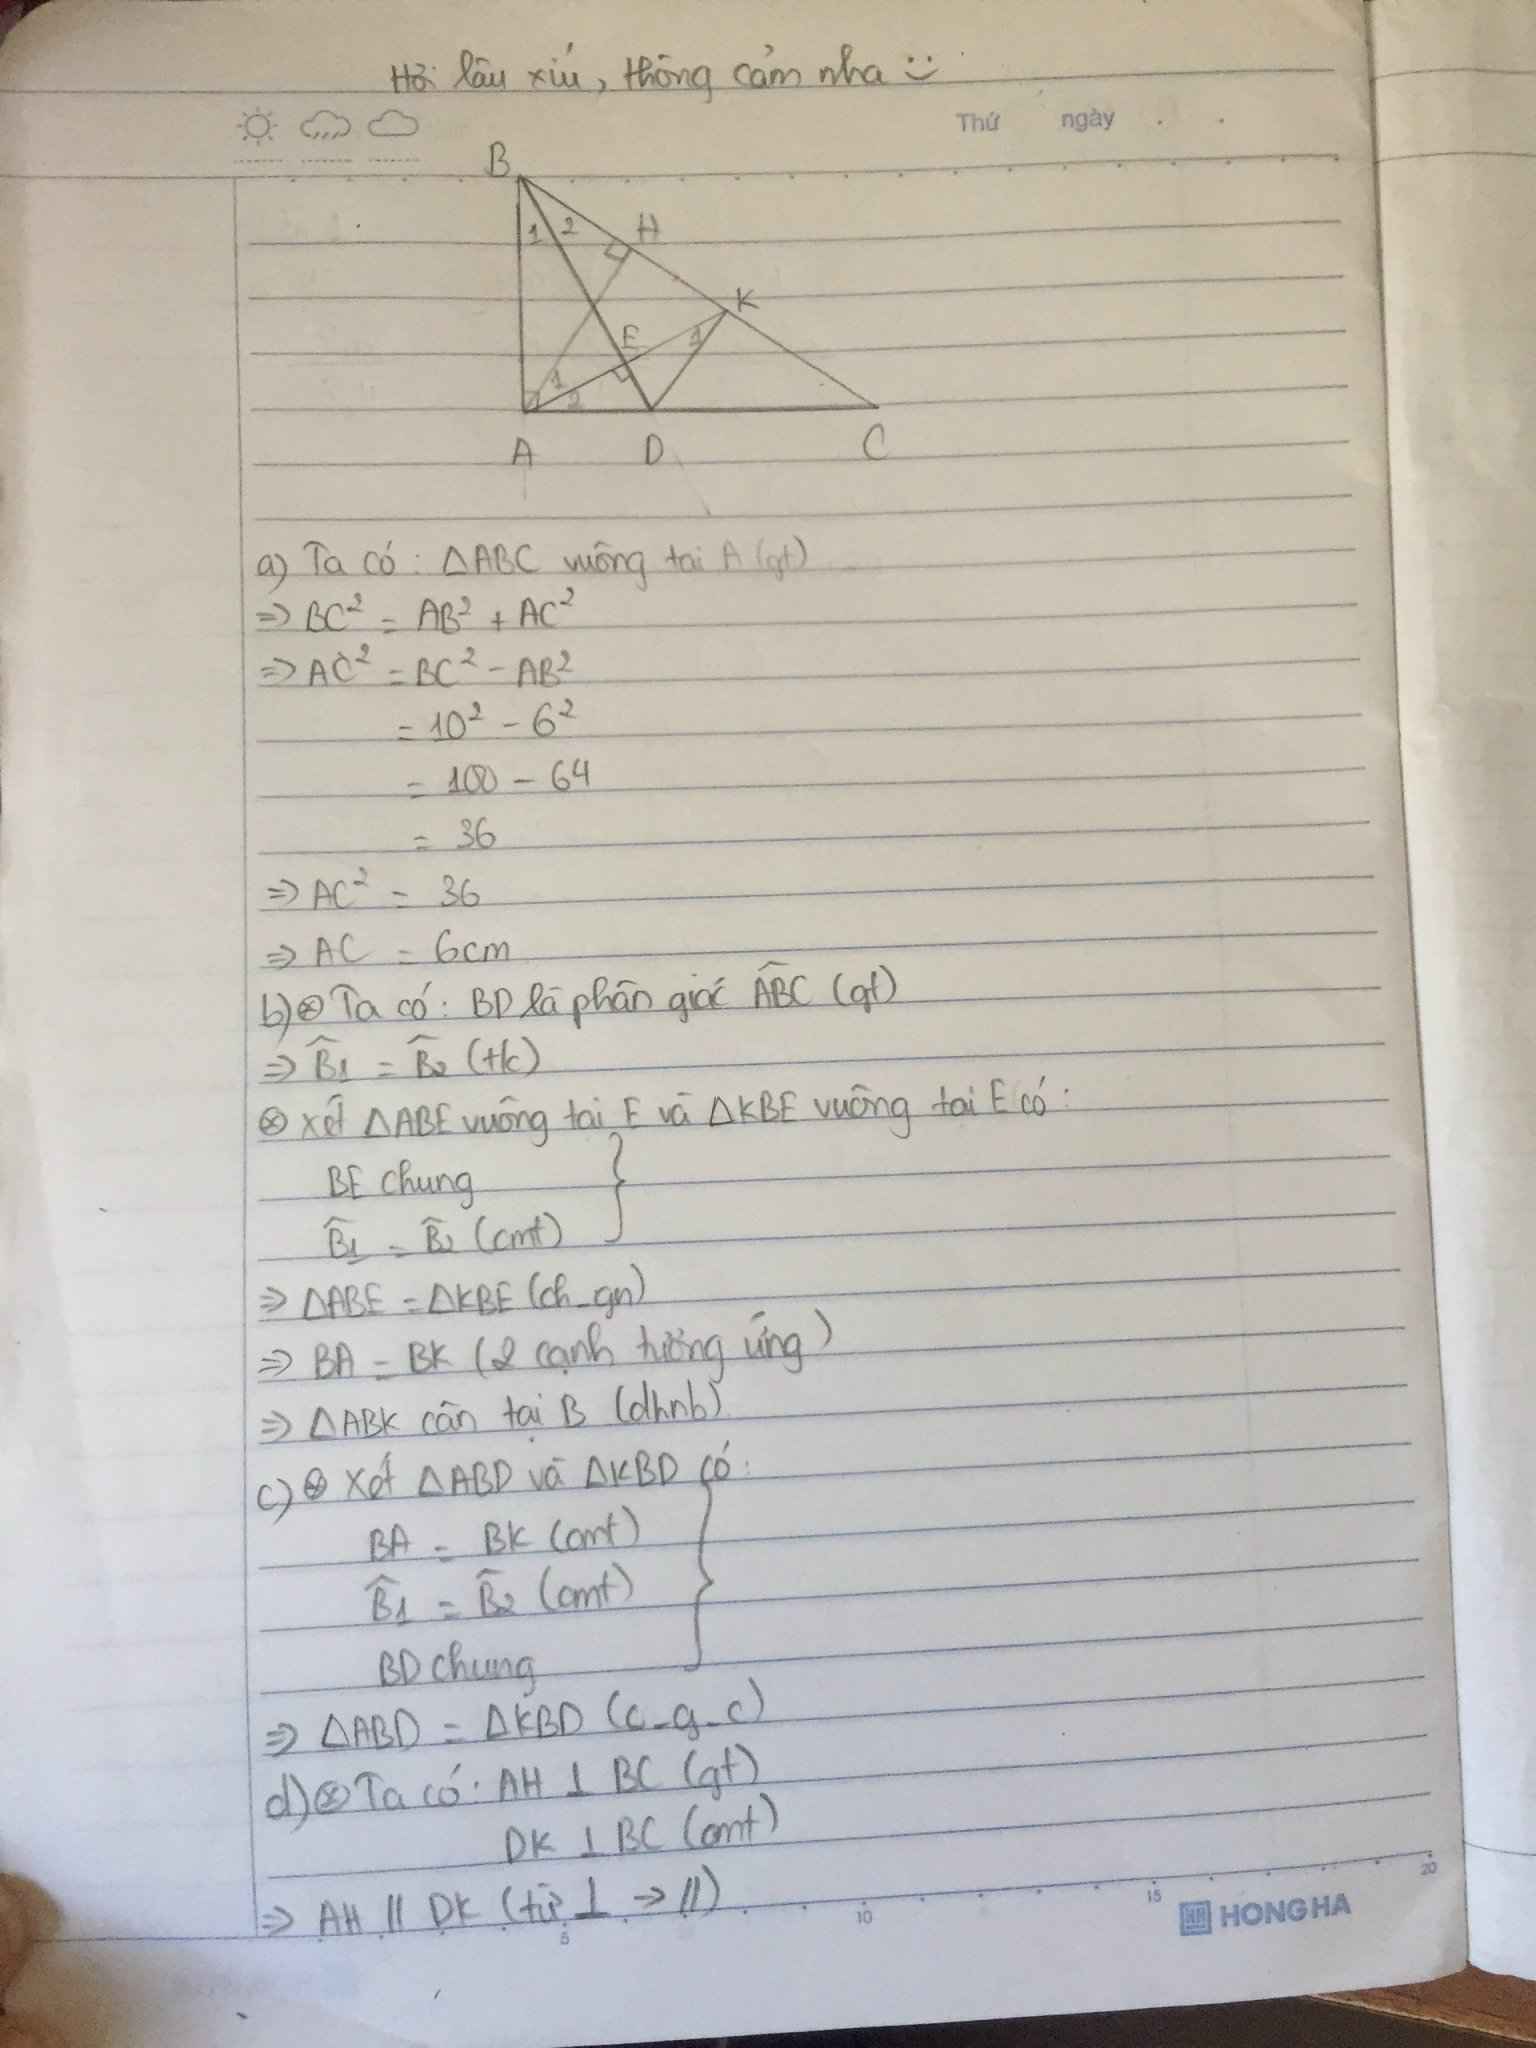 Hơi lâu xíu, thông cảm nha :)
Thứ ngày . .
B
1 2 H
K
E 1
1
2
A D C
a) Ta có : △ABC vuông tại A (gt)
=> BC² = AB² + AC²
=> AC² = BC² - AB²
= 10² - 6²
= 100 - 64
= 36
=> AC² = 36
=> AC = 6cm
b) ⊗ Ta có : BD là phân giác ABC (gt)
=> B̂1 = B̂2 (t/c)
⊗ Xét △ABE vuông tại E và △KBE vuông tại E có :
BE chung
B̂1 = B̂2 (cmt)
=> △ABE = △KBE (ch_gn)
=> BA = BK (2 cạnh tương ứng)
=> △ABK cân tại B (dhnb)
c) ⊗ Xét △ABD và △KBD có :
BA = BK (cmt)
B̂1 = B̂2 (cmt)
BD chung
=> △ABD = △KBD (c_g_c)
d) ⊗ Ta có : AH ⊥ BC (gt)
DK ⊥ BC (cmt)
=> AH // DK (từ ⊥ → //)
5 10 15 20
HONG HA